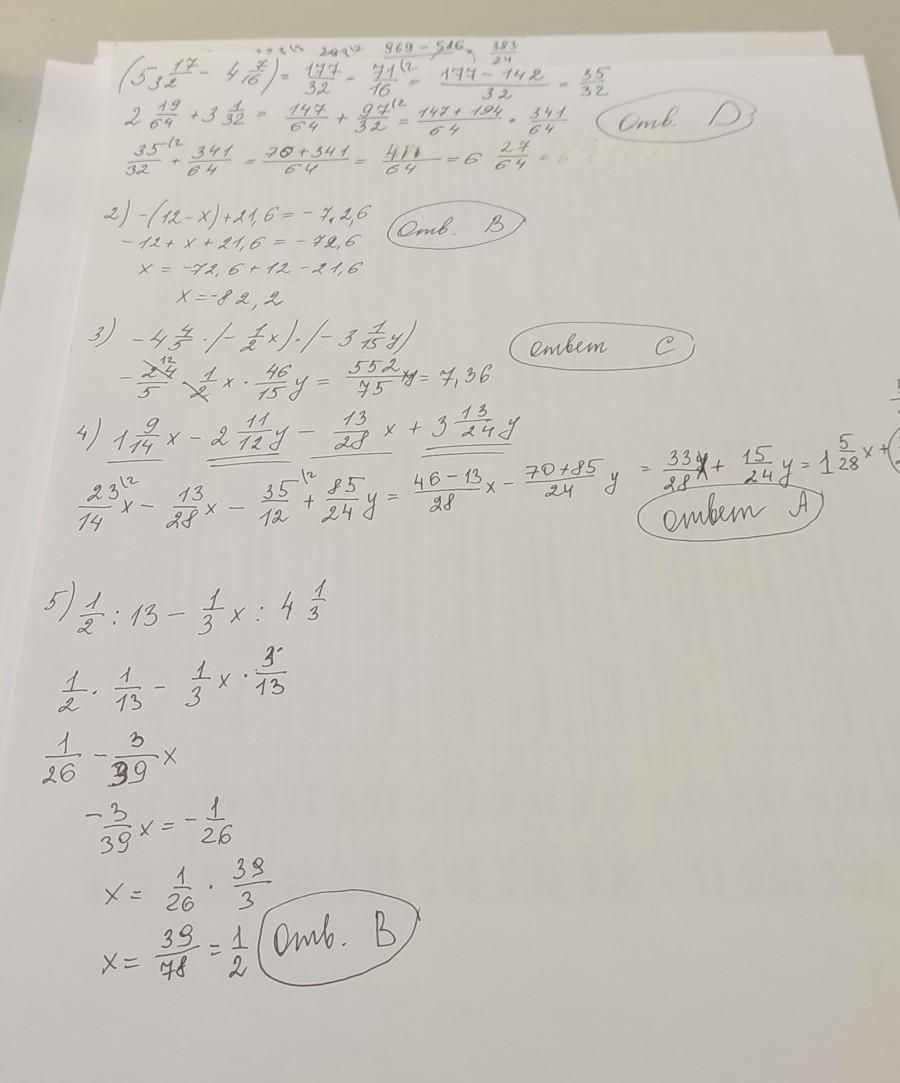 969 - 586 383/24
(5 17/32 - 4 7/16) = 177/32 - 71/16 (2 = 177 - 142/32 = 35/32
2 19/64 + 3 1/32 = 147/64 + 97/32 (2 = 147 + 194/64 = 341/64 Отв. D
35/32 (2 + 341/64 = 70 + 341/64 = 411/64 = 6 27/64
2) -(12 - x) + 21,6 = - 72,6 Отв. B
- 12 + x + 21,6 = - 72,6
x = -72,6 + 12 - 21,6
x = -82,2
3) - 4 4/5 · (- 1/2 x) · (- 3 1/15 y) ответ C
- 24/5 12 · 1/2 x · 46/15 y = 552/75 xy = 7,36
4) 1 9/14 x - 2 11/12 y - 13/28 x + 3 13/24 y
23/14 (2 x - 13/28 x - 35/12 (2 + 85/24 y = 46 - 13/28 x - 70 + 85/24 y = 33/28 x + 15/24 y = 1 5/28 x +
ответ A
5) 1/2 : 13 - 1/3 x : 4 1/3
1/2 · 1/13 - 1/3 x · 3/13
1/26 - 3/39 x
- 3/39 x = - 1/26
x = 1/26 · 39/3
x = 39/78 = 1/2 Отв. B